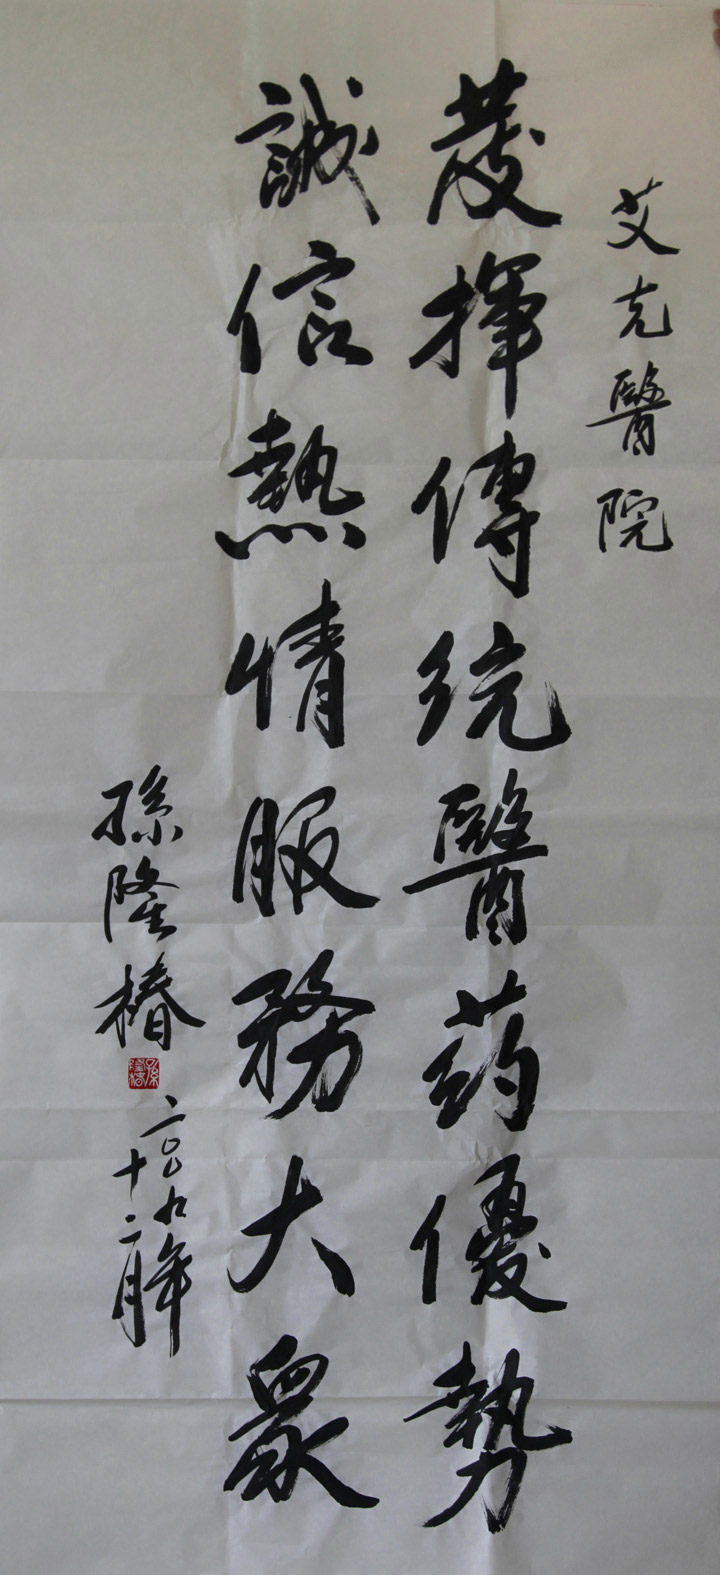 艾克醫院
發揮傳統醫药優勢
誠信熱情服務大眾
孫隆椿
二〇〇九年
十二月
孫隆椿